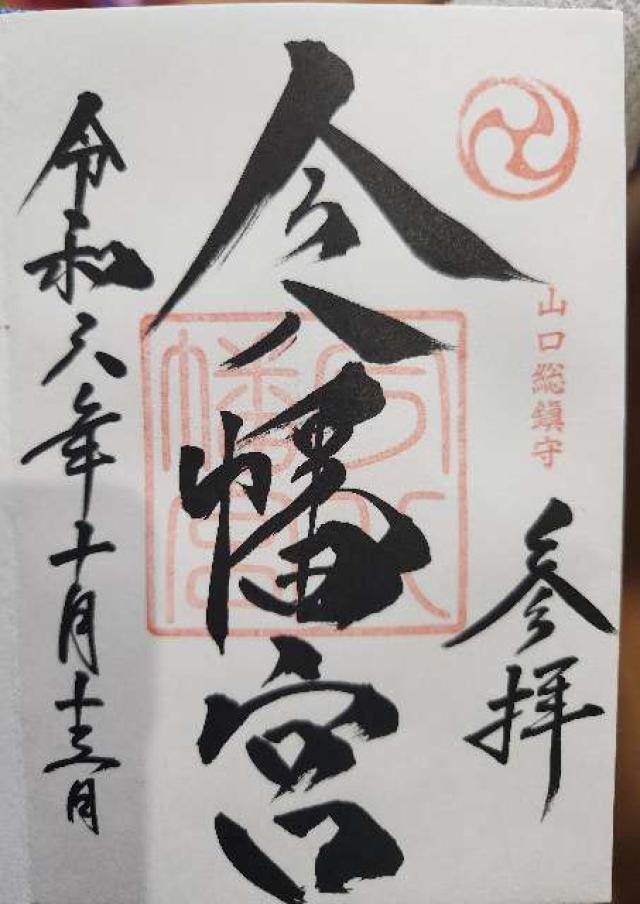 山口総鎮守
参拝
今八幡宮
令和六年十月十三日
今八幡宮